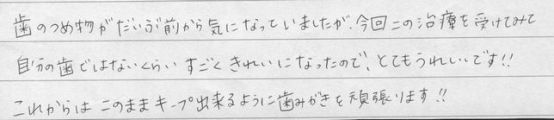 歯のつめ物がだいぶ前から気になっていましたが、今回この治療を受けてみて
自分の歯ではないくらいすごくきれいになったので、とてもうれしいです!!
これからはこのままキープ出来るように歯みがきを頑張ります!!